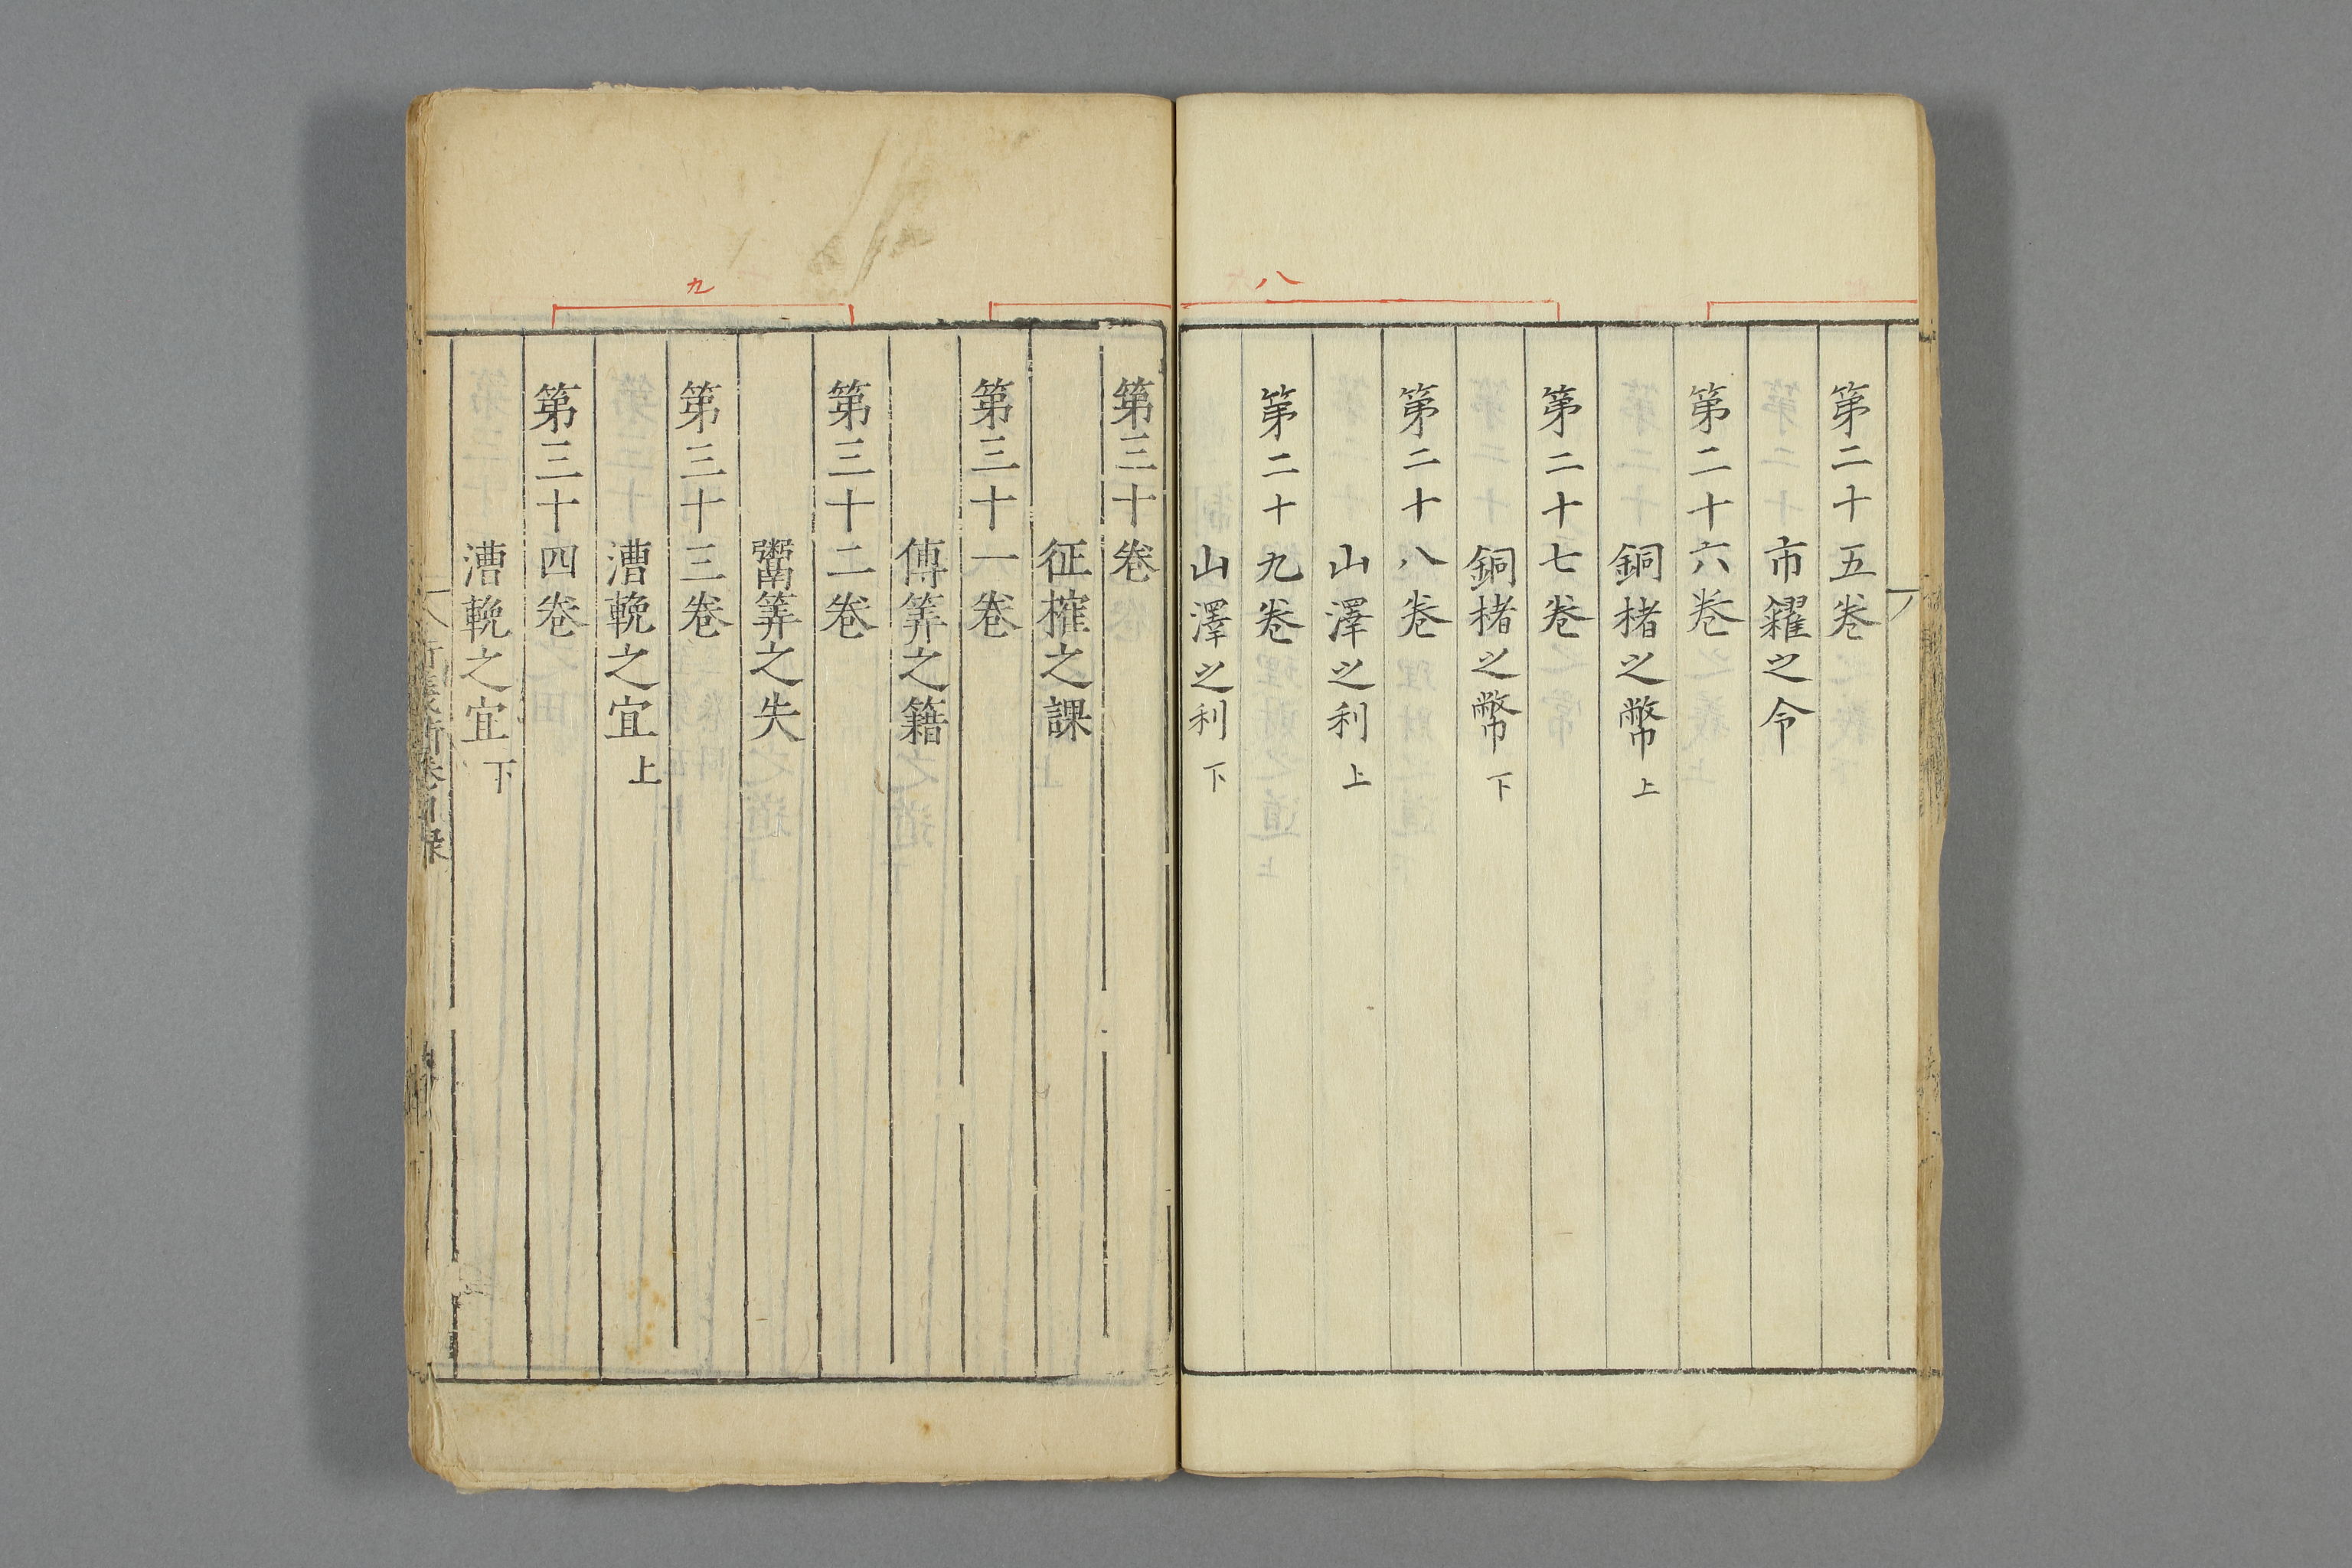 八
第二十五卷
市糴之令
第二十六卷
銅楮之幣 上
第二十七卷
銅楮之幣 下
第二十八卷
山澤之利 上
第二十九卷
山澤之利 下
九
第三十卷
征榷之課
第三十一卷
傅筭之籍
第三十二卷
鬻筭之失
第三十三卷
漕輓之宜 上
第三十四卷
漕輓之宜 下